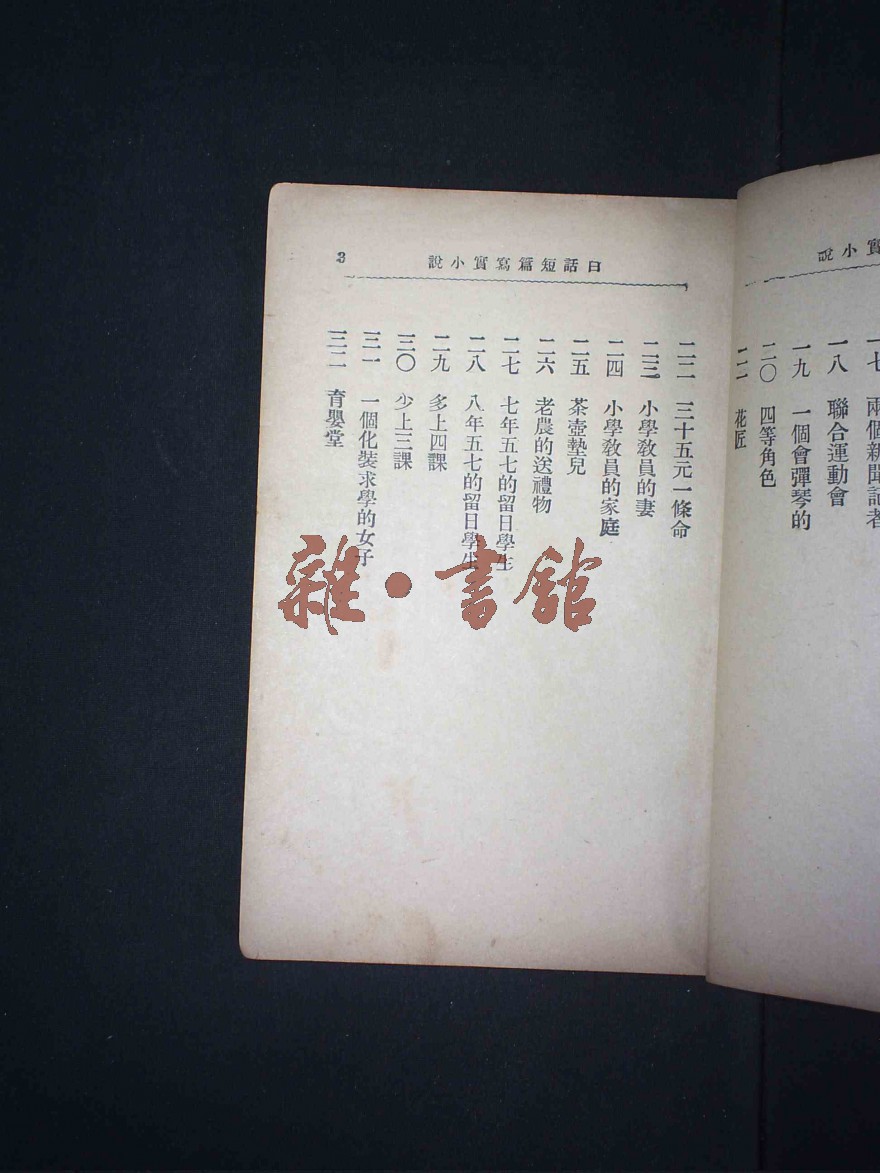 實小說
一七 兩個新聞記者
一八 聯合運動會
一九 一個會彈琴的
二〇 四等角色
二一 花匠
白話短篇寫實小說
3
二二 三十五元一條命
二三 小學教員的妻
二四 小學教員的家庭
二五 茶壺墊兒
二六 老農的送禮物
二七 七年五七的留日學生
二八 八年五七的留日學生
二九 多上四課
三〇 少上三課
三一 一個化裝求學的女子
三二 育嬰堂
雜·書館